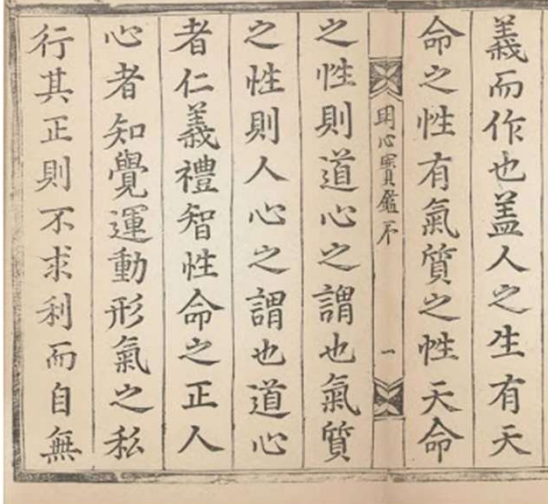 義而作也盖人之生有天
命之性有氣質之性天命
用心寶鑑下
一
之性則道心之謂也氣質
之性則人心之謂也道心
者仁義禮智性命之正人
心者知覺運動形氣之私
行其正則不求利而自無